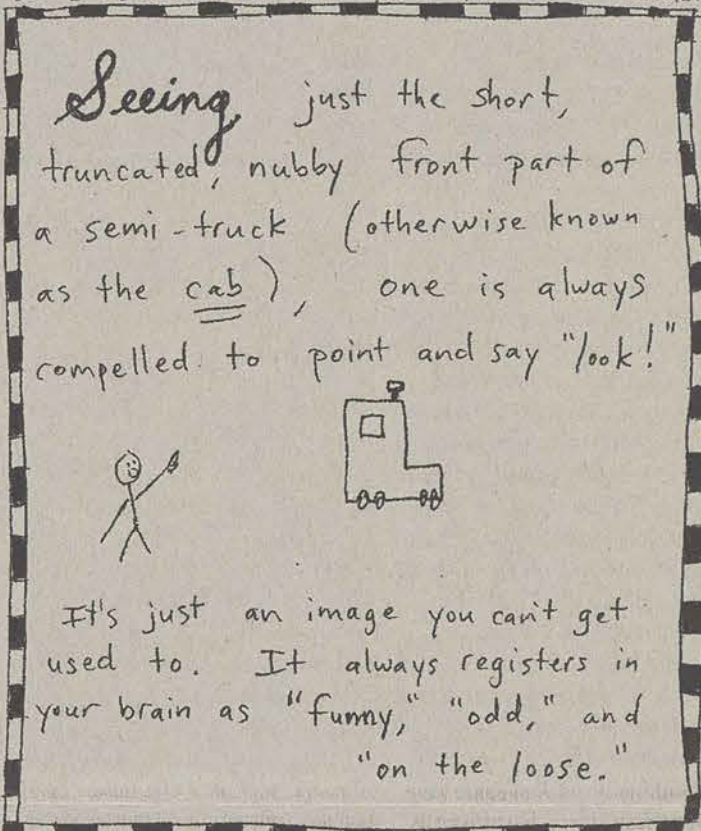 Seeing just the short,
truncated, nubby front part of
a semi-truck (otherwise known
as the cab), one is always
compelled to point and say "look!"
It's just an image you can't get
used to. It always registers in
your brain as "funny," "odd," and
"on the loose."